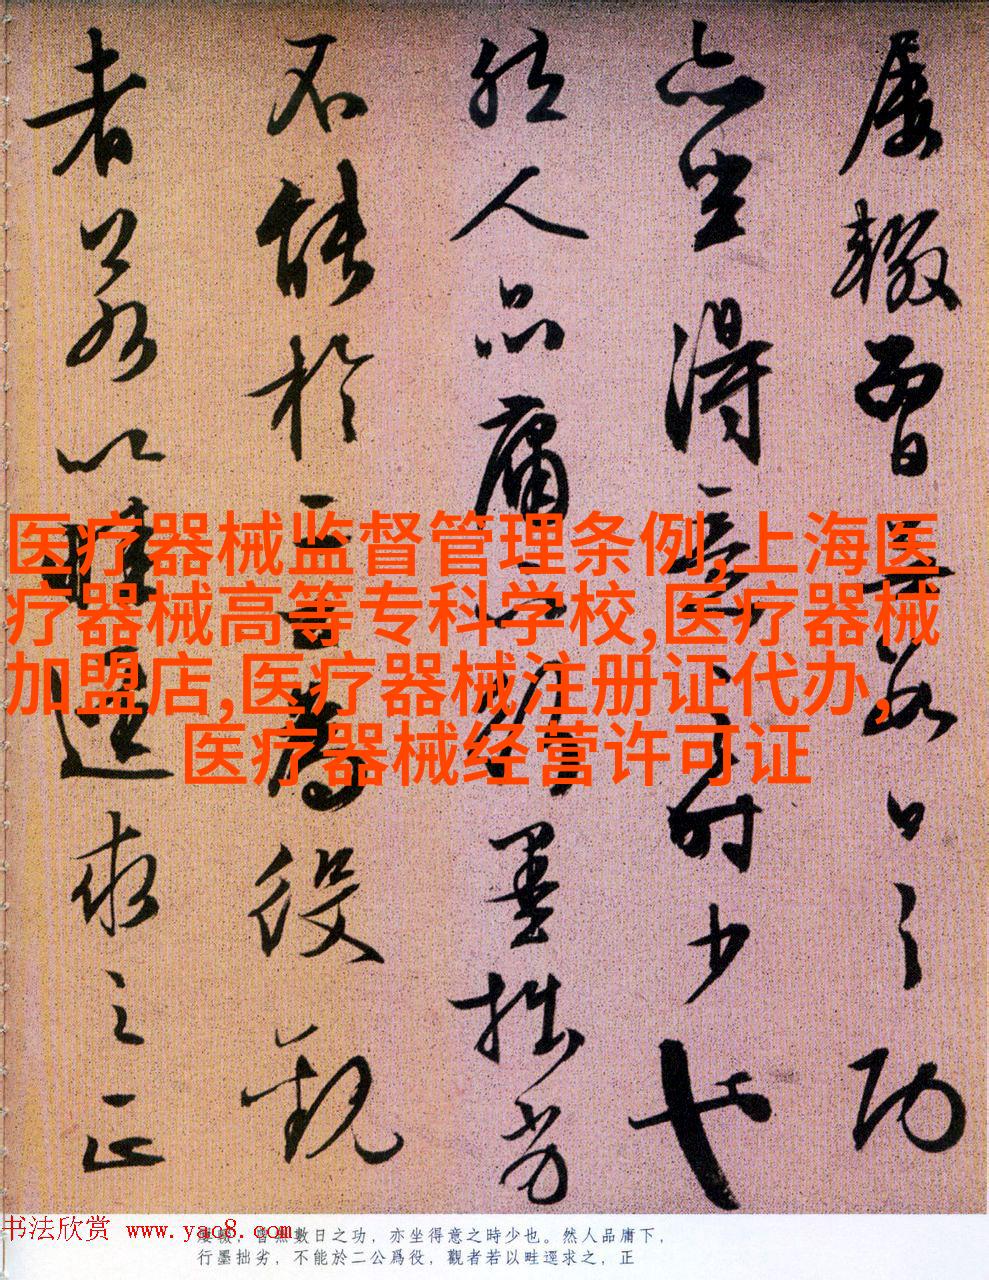 屢輟曾無數日之功
亦坐得意之時少也
然人品庸下行墨拙劣
不能於二公為役觀
者若以畦逕求之正
医疗器械监督管理条例,上海医
疗器械高等专科学校,医疗器械
加盟店,医疗器械注册证代办,
医疗器械经营许可证
书法欣赏 www.yac8.com
屢輟，曾無數日之功，亦坐得意之時少也。然人品庸下，
行墨拙劣，不能於二公爲役，觀者若以畦逕求之，正